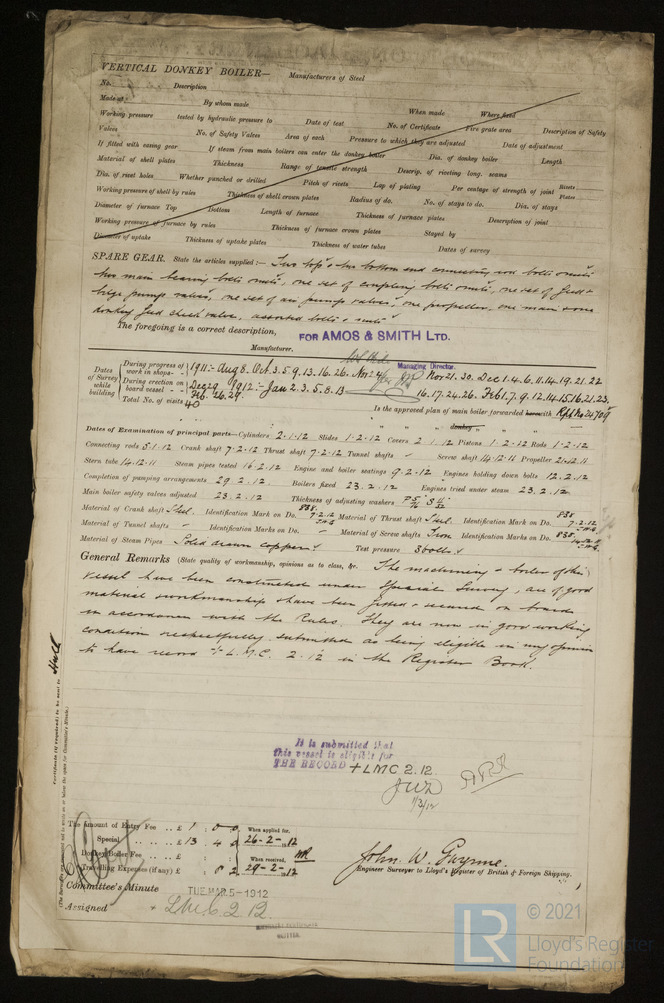 VERTICAL DONKEY BOILER— Manufacturers of Steel
No. Description
Made at By whom made When made Where fixed
Working pressure tested by hydraulic pressure to Date of test No. of Certificate Fire grate area Description of Safety
Valves No. of Safety Valves Area of each Pressure to which they are adjusted Date of adjustment
If fitted with easing gear If steam from main boilers can enter the donkey boiler Dia. of donkey boiler Length
Material of shell plates Thickness Range of tensile strength Descrip. of riveting long. seams
Dia. of rivet holes Whether punched or drilled Pitch of rivets Lap of plating Per centage of strength of joint Rivets Plates
Working pressure of shell by rules Thickness of shell crown plates Radius of do. No. of stays to do. Dia. of stays
Diameter of furnace Top Bottom Length of furnace Thickness of furnace plates Description of joint
Working pressure of furnace by rules Thickness of furnace crown plates Stayed by
Diameter of uptake Thickness of uptake plates Thickness of water tubes Dates of survey
SPARE GEAR. State the articles supplied:— Two top & two bottom end connecting rod bolts & nuts
two main bearing bolts & nuts, one set of coupling bolts & nuts, one set of feed &
bilge pump valves, one set of air pump valves, one propeller, one main & one
donkey feed check valve, assorted bolts & nuts
The foregoing is a correct description,
FOR AMOS & SMITH LTD.
Manufacturer.
Managing Director.
Dates of Survey while building
During progress of work in shops - - 1911:- Aug 8. Oct. 3. 5. 9. 13. 16. 26. Nov 21. 30. Dec 1. 4. 6. 11. 14. 19. 21. 22
During erection on board vessel - - - Dec 29. 1912:- Jan 2. 3. 5. 8. 13 16. 17. 24. 26. Feb 1. 7. 9. 12. 14. 15. 16. 21. 23.
Feb. 26. 29.
Total No. of visits 40
Is the approved plan of main boiler forwarded herewith Rpt No 24709
" " " donkey " " "
Dates of Examination of principal parts—Cylinders 2.1.12 Slides 1.2.12 Covers 2.1.12 Pistons 1.2.12 Rods 1.2.12
Connecting rods 5.1.12 Crank shaft 7.2.12 Thrust shaft 7.2.12 Tunnel shafts - Screw shaft 14.12.11 Propeller 21.12.11
Stern tube 14.12.11 Steam pipes tested 16.2.12 Engine and boiler seatings 9.2.12 Engines holding down bolts 12.2.12
Completion of pumping arrangements 29.2.12 Boilers fixed 23.2.12 Engines tried under steam 23.2.12
Main boiler safety valves adjusted 23.2.12 Thickness of adjusting washers P 5/16 S 11/32
Material of Crank shaft Steel. Identification Mark on Do. 838. 7.2.12 Material of Thrust shaft Steel Identification Mark on Do. 838 7.2.12
Material of Tunnel shafts - Identification Marks on Do. Material of Screw shafts Iron Identification Marks on Do. 838
Material of Steam Pipes Solid drawn copper Test pressure 300 lbs
General Remarks (State quality of workmanship, opinions as to class, &c. The machinery & boiler of this
vessel have been constructed under Special Survey, are of good
material & workmanship & have been fitted & secured on board
in accordance with the Rules. They are now in good working
condition & respectfully submitted as being eligible in my opinion
to have record + L.M.C. 2.12 in the Register Book.
Certificate (if required) to be sent to Hull
(The Surveyors are requested not to write on or below the space for Committee's Minute.)
It is submitted that
this vessel is eligible for
THE RECORD + LMC 2.12.
1/3/12
The Amount of Entry Fee .. £ 1 : 0 : 0 When applied for,
Special .. .. £ 13 : 4 : 0 26-2-1912
Donkey Boiler Fee .. .. £ : : When received,
Travelling Expenses (if any) £ : 8 : 2 29-2-1912
John W. Gwynne.
Engineer Surveyor to Lloyd's Register of British & Foreign Shipping.
Committee's Minute TUE. MAR. 5-1912
Assigned + LMC 2.12
WRITTEN
© 2021
LR
Lloyd's Register
Foundation